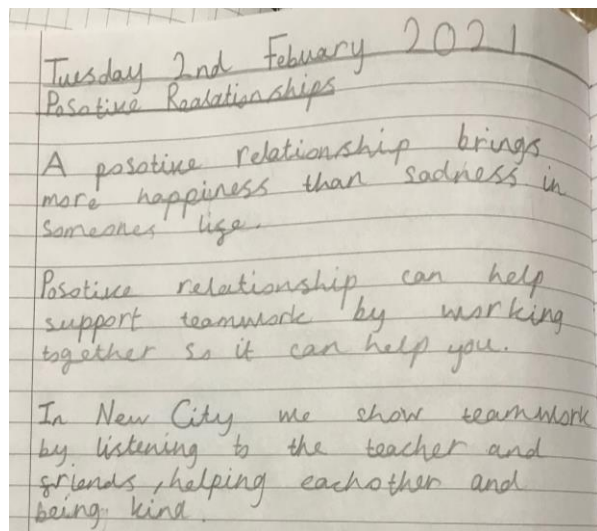 Tuesday 2nd Febuary 2021
Posotive Realationships
A posotive relationship brings
more happiness than sadness in
someones life.
Posotive relationship can help
support teamwork by working
together so it can help you.
In New City we show teamwork
by listening to the teacher and
friends, helping eachother and
being kind.